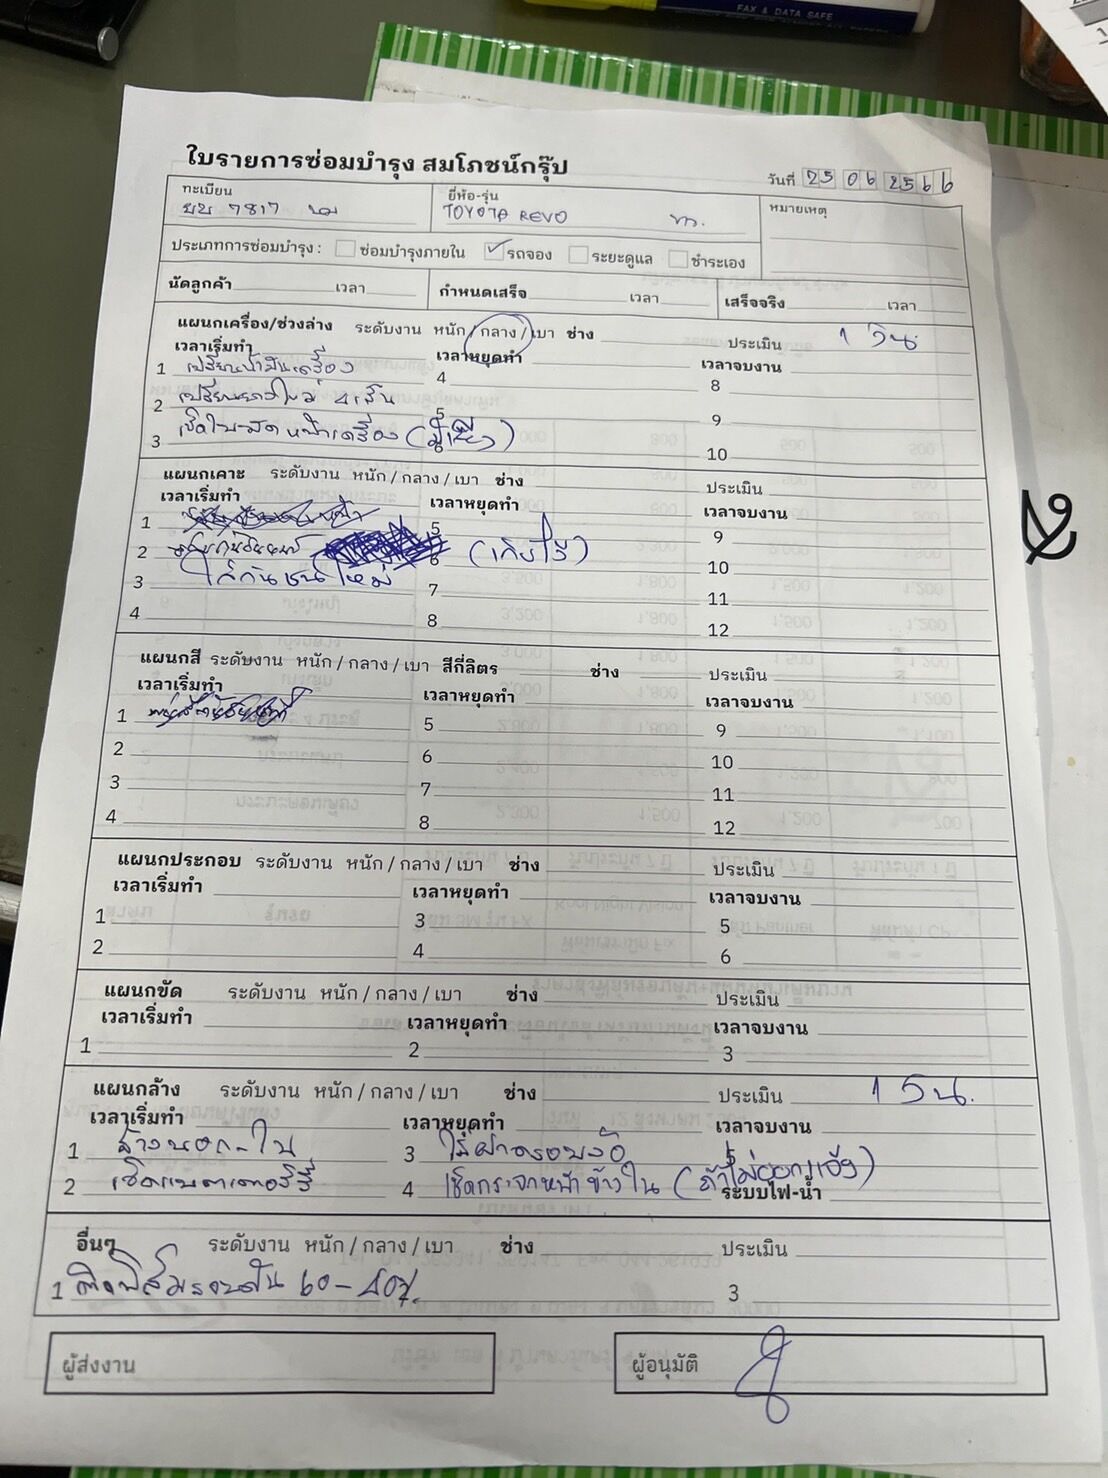 FAX & DATA SAFE
ใบรายการซ่อมบำรุง สมโภชน์กรุ๊ป
วันที่ 25 06 2566
ทะเบียน ยี่ห้อ-รุ่น หมายเหตุ
7817 TOYOTA REVO
ประเภทการซ่อมบำรุง : ซ่อมบำรุงภายใน รถจอง ระยะดูแล ชำระเอง
นัดลูกค้า เวลา กำหนดเสร็จ เวลา เสร็จจริง เวลา
แผนกเครื่อง/ช่วงล่าง ระดับงาน หนัก / กลาง / เบา ช่าง ประเมิน 1 วัน
เวลาเริ่มทำ เวลาหยุดทำ เวลาจบงาน
1 เปลี่ยนน้ำมันเครื่อง 4 8
2 เปลี่ยนยางใหม่ 4 เส้น 5 9
3 หน้าเครื่อง (มีเสียง) 6 10
แผนกเคาะ ระดับงาน หนัก / กลาง / เบา ช่าง ประเมิน
เวลาเริ่มทำ เวลาหยุดทำ เวลาจบงาน
1 5 9
2 6 (เก็บไว้) 10
3 ใส่กันชนใหม่ 7 11
4 8 12
แผนกสี ระดับงาน หนัก / กลาง / เบา สีกี่ลิตร ช่าง ประเมิน
เวลาเริ่มทำ เวลาหยุดทำ เวลาจบงาน
1 5 9
2 6 10
3 7 11
4 8 12
แผนกประกอบ ระดับงาน หนัก / กลาง / เบา ช่าง ประเมิน
เวลาเริ่มทำ เวลาหยุดทำ เวลาจบงาน
1 3 5
2 4 6
แผนกขัด ระดับงาน หนัก / กลาง / เบา ช่าง ประเมิน
เวลาเริ่มทำ เวลาหยุดทำ เวลาจบงาน
1 2 3
แผนกล้าง ระดับงาน หนัก / กลาง / เบา ช่าง ประเมิน 1 วัน.
เวลาเริ่มทำ เวลาหยุดทำ เวลาจบงาน
1 ล้างนอก-ใน 3 ใส่ฝาครอบล้อ 5
2 เช็ดแบตเตอรี่ 4 เช็ดกระจกหน้าข้างใน (ถ้าไม่ออกแจ้ง) ระบบไฟ-น้ำ
อื่นๆ ระดับงาน หนัก / กลาง / เบา ช่าง ประเมิน
1 ติดฟิล์มรอบคัน 60-40%. 3
ผู้ส่งงาน ผู้อนุมัติ